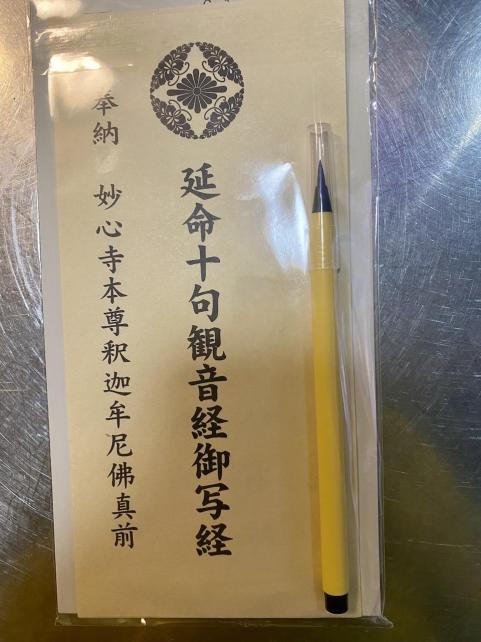 延命十句観音経御写経
奉納 妙心寺本尊釈迦牟尼佛真前